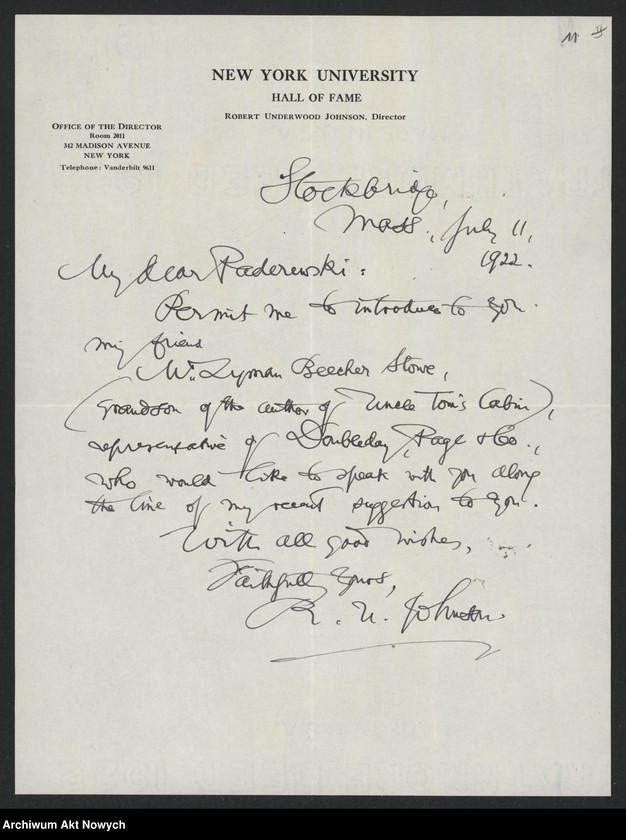 11
NEW YORK UNIVERSITY
HALL OF FAME
ROBERT UNDERWOOD JOHNSON, Director
OFFICE OF THE DIRECTOR
Room 2011
342 MADISON AVENUE
NEW YORK
Telephone: Vanderbilt 9611
Stockbridge,
Mass., July 11,
1922.
My dear Paderewski:
Permit me to introduce to you
my friend
Mr. Lyman Beecher Stowe,
(grandson of the author of Uncle Tom's Cabin),
representative of Doubleday, Page & Co.,
who would like to speak with you along
the line of my recent suggestion to you.
With all good wishes,
Faithfully Yours,
R. U. Johnson
Archiwum Akt Nowych